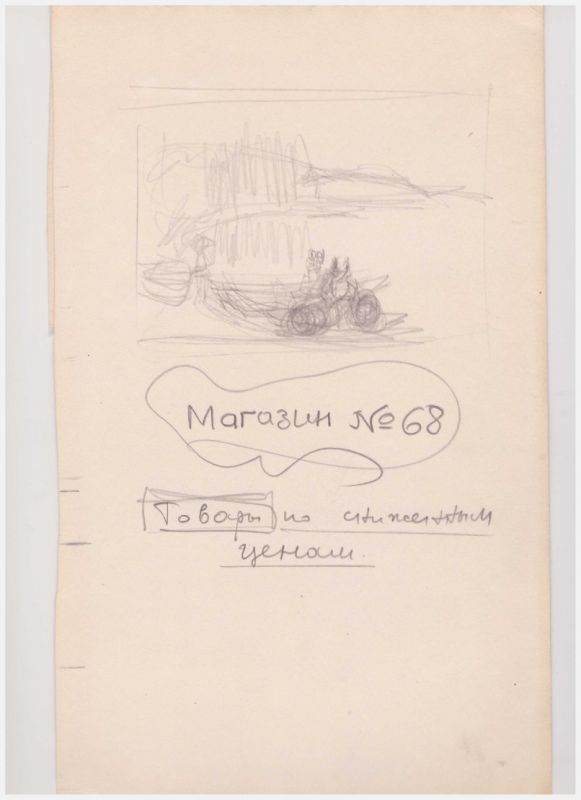 Магазин №68
Товары по сниженным
ценам.